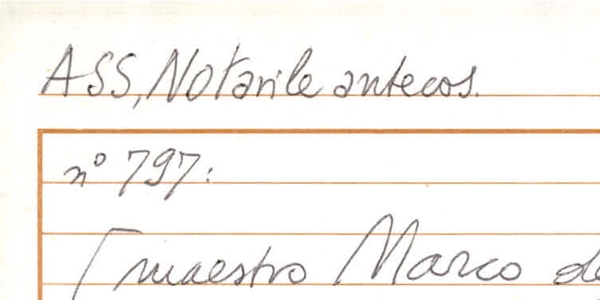 ASS, Notarile antecos.
n° 797:
[maestro Marco de